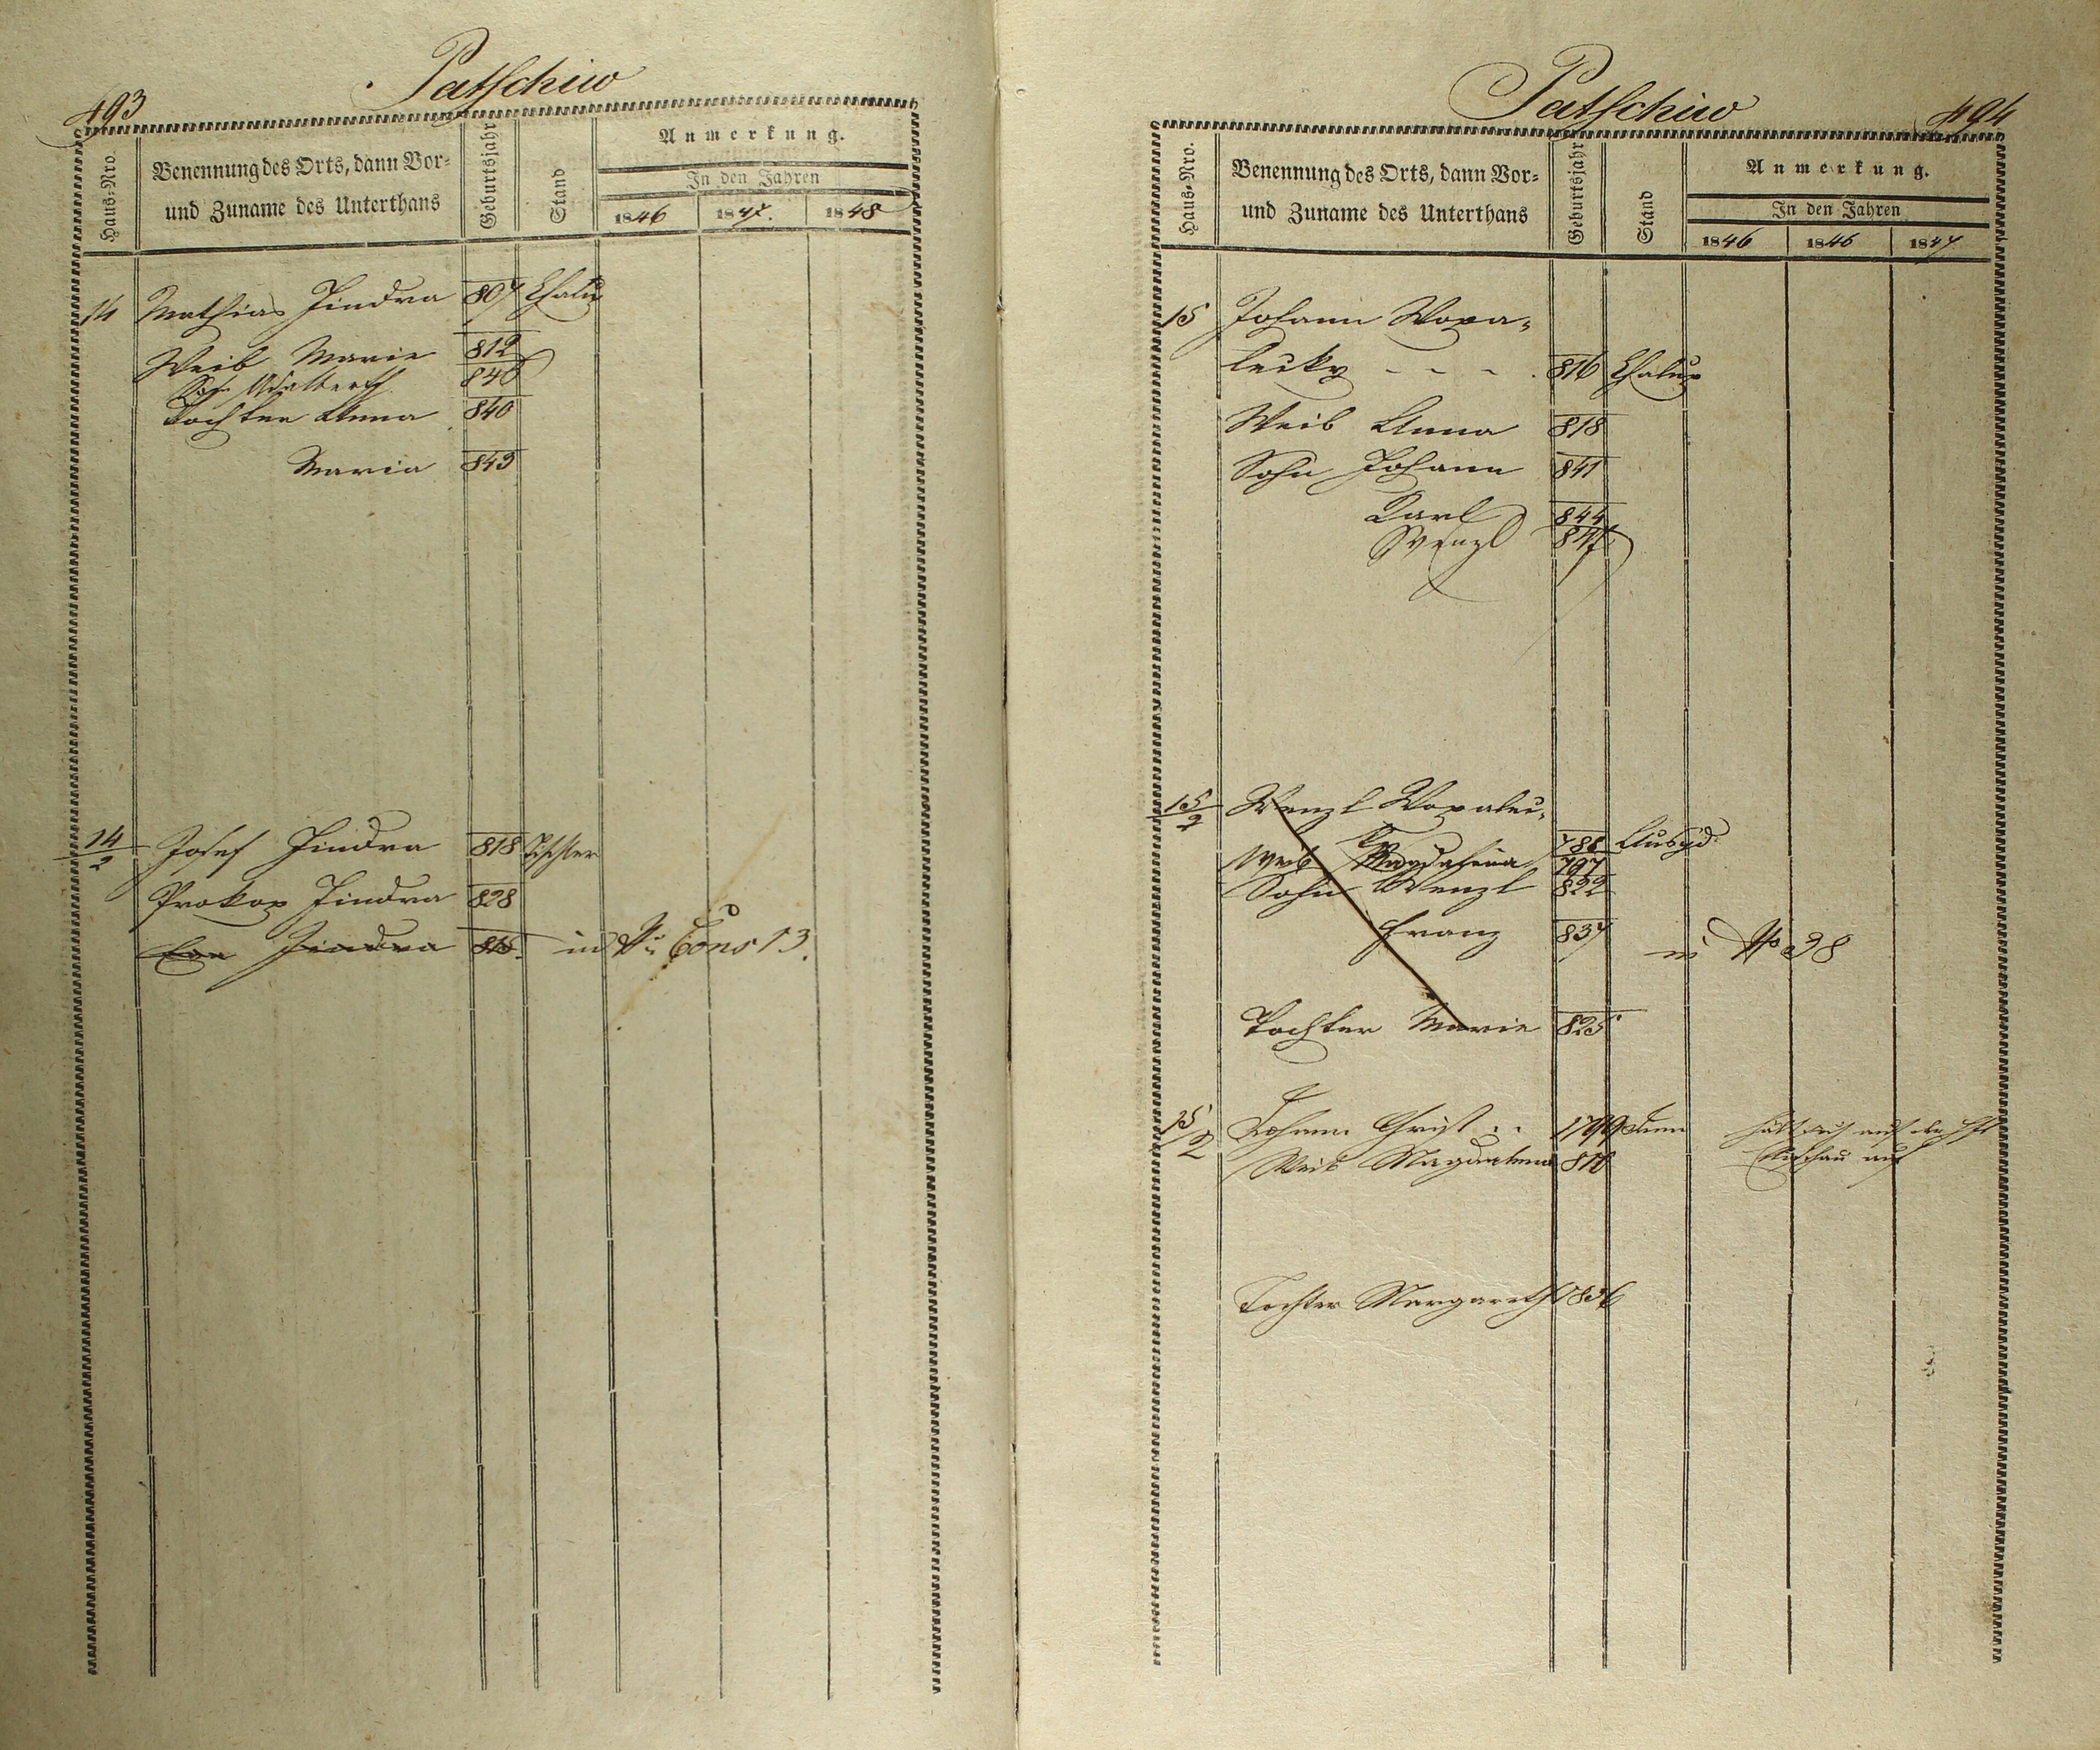 493
Patschiw
Haus-Nro.
Benennung des Orts, dann Vor-
und Zuname des Unterthans
Geburtsjahr
Stand
Anmerkung.
In den Jahren
1846 1847. 1848
14 Mathias Jindra 807 Chalu
Weib Marie 812
Sohn Adalberth 846
Tochter Anna 840
Maria 843
14/2 Josef Jindra 818 Tischler
Prokop Jindra 828
Jindra 815. in Nr Cons 13.
Patschiw
494
Haus-Nro.
Benennung des Orts, dann Vor-
und Zuname des Unterthans
Geburtsjahr
Stand
Anmerkung.
In den Jahren
1846 1846 1847
15 Johann Wopa-
lecky - - - . 816 Chalup
Weib Anna 818
Sohn Johann 841
Karl 844
Wenzl 847
15/2 Wenzl Wopalec-
ky 788 Ausgd.
Weib Magdalena 797
Sohn Wenzl 822
Franz 837 in No 38
Tochter Marie 825
15/2 Johann Christ . . 1799
Weib Magdalena 810
auf
Tochter Margareth 1836